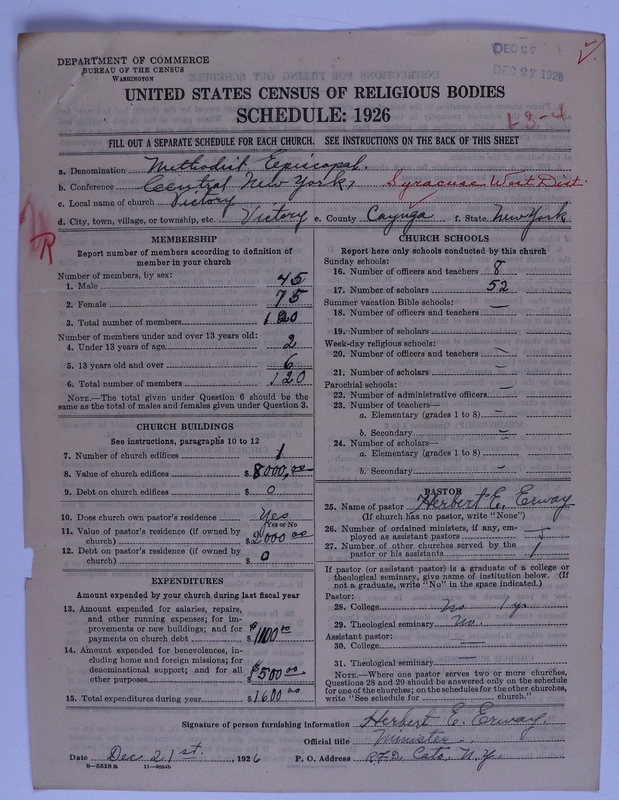 DEPARTMENT OF COMMERCE
BUREAU OF THE CENSUS
WASHINGTON
DEC 27
DEC 27 1926
UNITED STATES CENSUS OF RELIGIOUS BODIES
SCHEDULE: 1926
L3-4
FILL OUT A SEPARATE SCHEDULE FOR EACH CHURCH. SEE INSTRUCTIONS ON THE BACK OF THIS SHEET
a. Denomination Methodist Episcopal.
b. Conference Central New York, Syracuse West Dist.
c. Local name of church Victory
d. City, town, village, or township, etc. Victory e. County Cayuga f. State New York
MEMBERSHIP
Report number of members according to definition of
member in your church
Number of members, by sex:
1. Male 45
2. Female 75
3. Total number of members 120
Number of members under and over 13 years old:
4. Under 13 years of age 2
5. 13 years old and over 6
6. Total number of members 120
NOTE.—The total given under Question 6 should be the
same as the total of males and females given under Question 3.
CHURCH BUILDINGS
See instructions, paragraphs 10 to 12
7. Number of church edifices 1
8. Value of church edifices $ 8000,00
9. Debt on church edifices $ 0
10. Does church own pastor's residence Yes
Yes or No
11. Value of pastor's residence (if owned by
church) $ 2000 00
12. Debt on pastor's residence (if owned by
church) $ 0
EXPENDITURES
Amount expended by your church during last fiscal year
13. Amount expended for salaries, repairs,
and other running expenses; for im-
provements or new buildings; and for
payments on church debt $ 1100 00
14. Amount expended for benevolences, in-
cluding home and foreign missions; for
denominational support; and for all
other purposes $ 500 00
15. Total expenditures during year $ 1600 00
CHURCH SCHOOLS
Report here only schools conducted by this church
Sunday schools:
16. Number of officers and teachers 8
17. Number of scholars 52
Summer vacation Bible schools:
18. Number of officers and teachers —
19. Number of scholars
Week-day religious schools:
20. Number of officers and teachers
21. Number of scholars —
Parochial schools:
22. Number of administrative officers —
23. Number of teachers—
a. Elementary (grades 1 to 8) —
b. Secondary —
24. Number of scholars—
a. Elementary (grades 1 to 8) —
b. Secondary —
PASTOR
25. Name of pastor Herbert E. Erway
(If church has no pastor, write "None")
26. Number of ordained ministers, if any, em-
ployed as assistant pastors
27. Number of other churches served by the
pastor or his assistants 1
If pastor (or assistant pastor) is a graduate of a college or
theological seminary, give name of institution below. (If
not a graduate, write "No" in the space indicated.)
Pastor:
28. College No 1 yr
29. Theological seminary No.
Assistant pastor:
30. College —
31. Theological seminary —
NOTE.—Where one pastor serves two or more churches,
Questions 28 and 29 should be answered only on the schedule
for one of the churches; on the schedules for the other churches,
write "See schedule for church."
Signature of person furnishing information Herbert E. Erway.
Official title Minister.
Date Dec 21st. , 1926 P. O. Address R.F.D. Cato, N.Y.
8-5518a 11-9684b